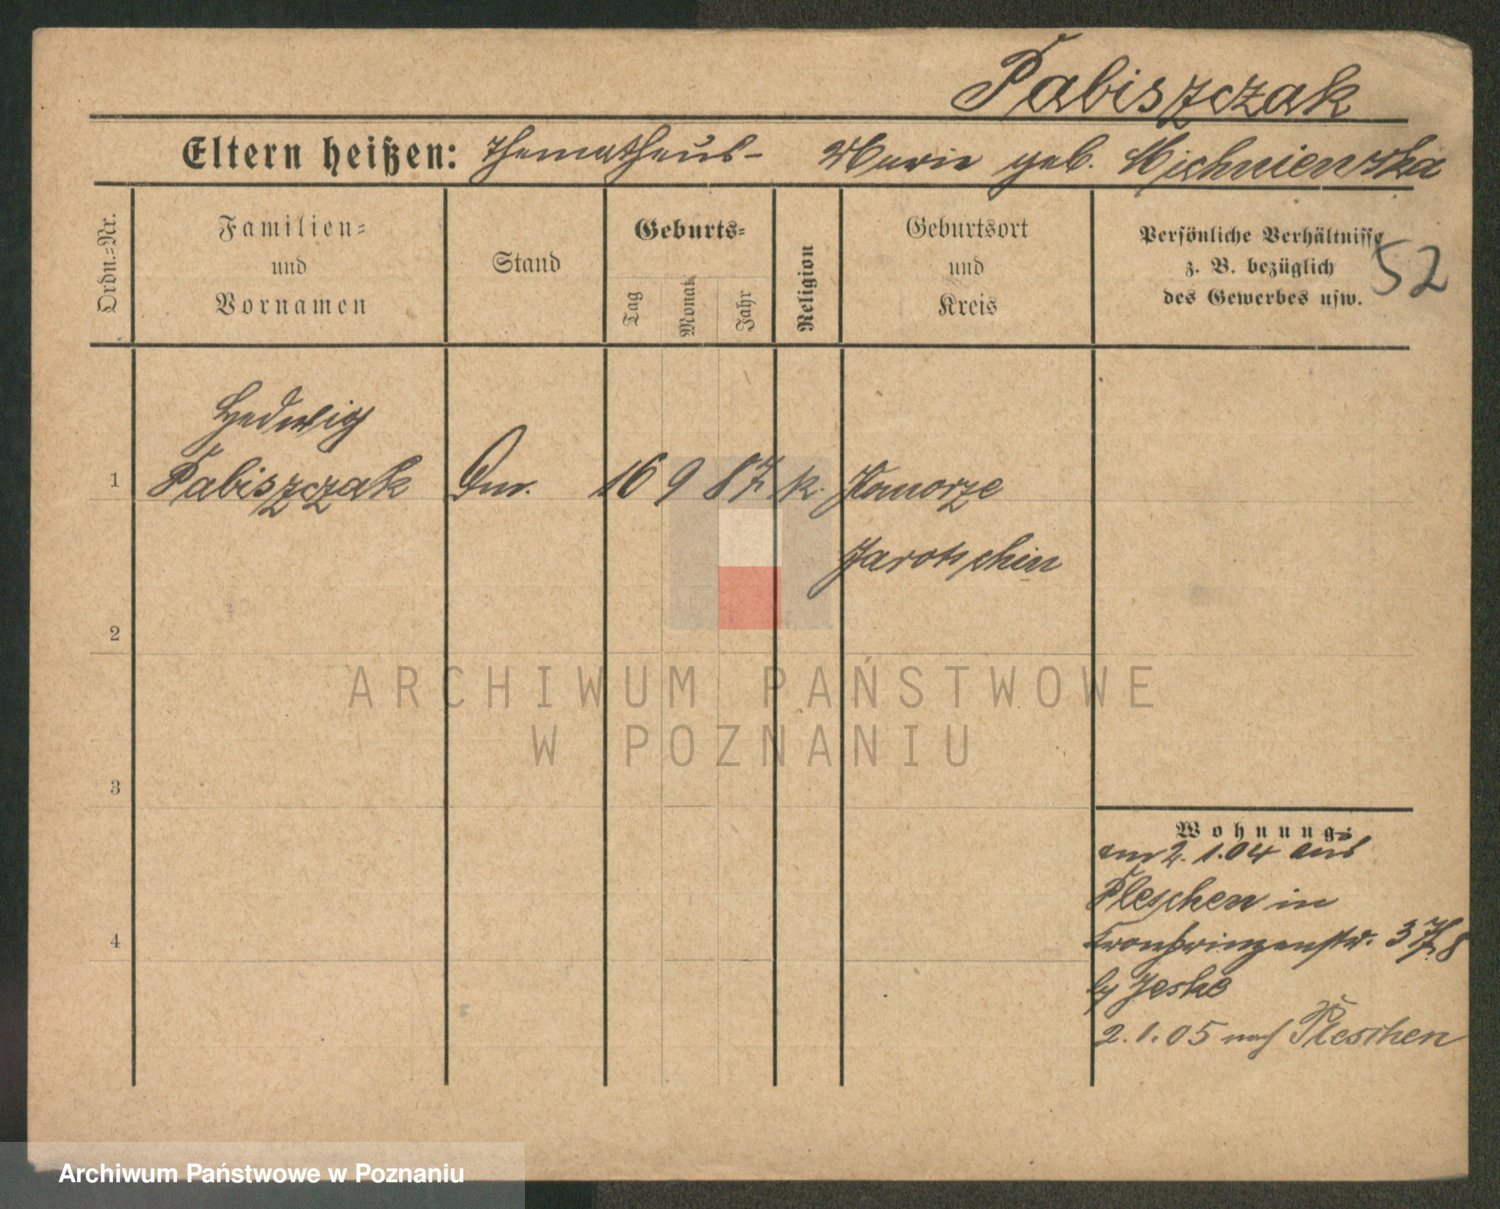 Pabiszczak
Eltern heißen: Marie geb. Michniewska
Ordn.-Nr.
Familien-
und
Vornamen
Stand
Geburts-
Tag
Monat
Jahr
Religion
Geburtsort
und
Kreis
Persönliche Verhältnisse
z. B. bezüglich
des Gewerbes usw.
52
Hedwig
1 Pabiszczak 16 9 87 k.
Jarotschin
2
3
4
ARCHIWUM PAŃSTWOWE
W POZNANIU
Wohnung:
am 2.1.04 aus
Pleschen in
Kronprinzenstr. 37
Jeske
2.1.05 nach Pleschen
Archiwum Państwowe w Poznaniu